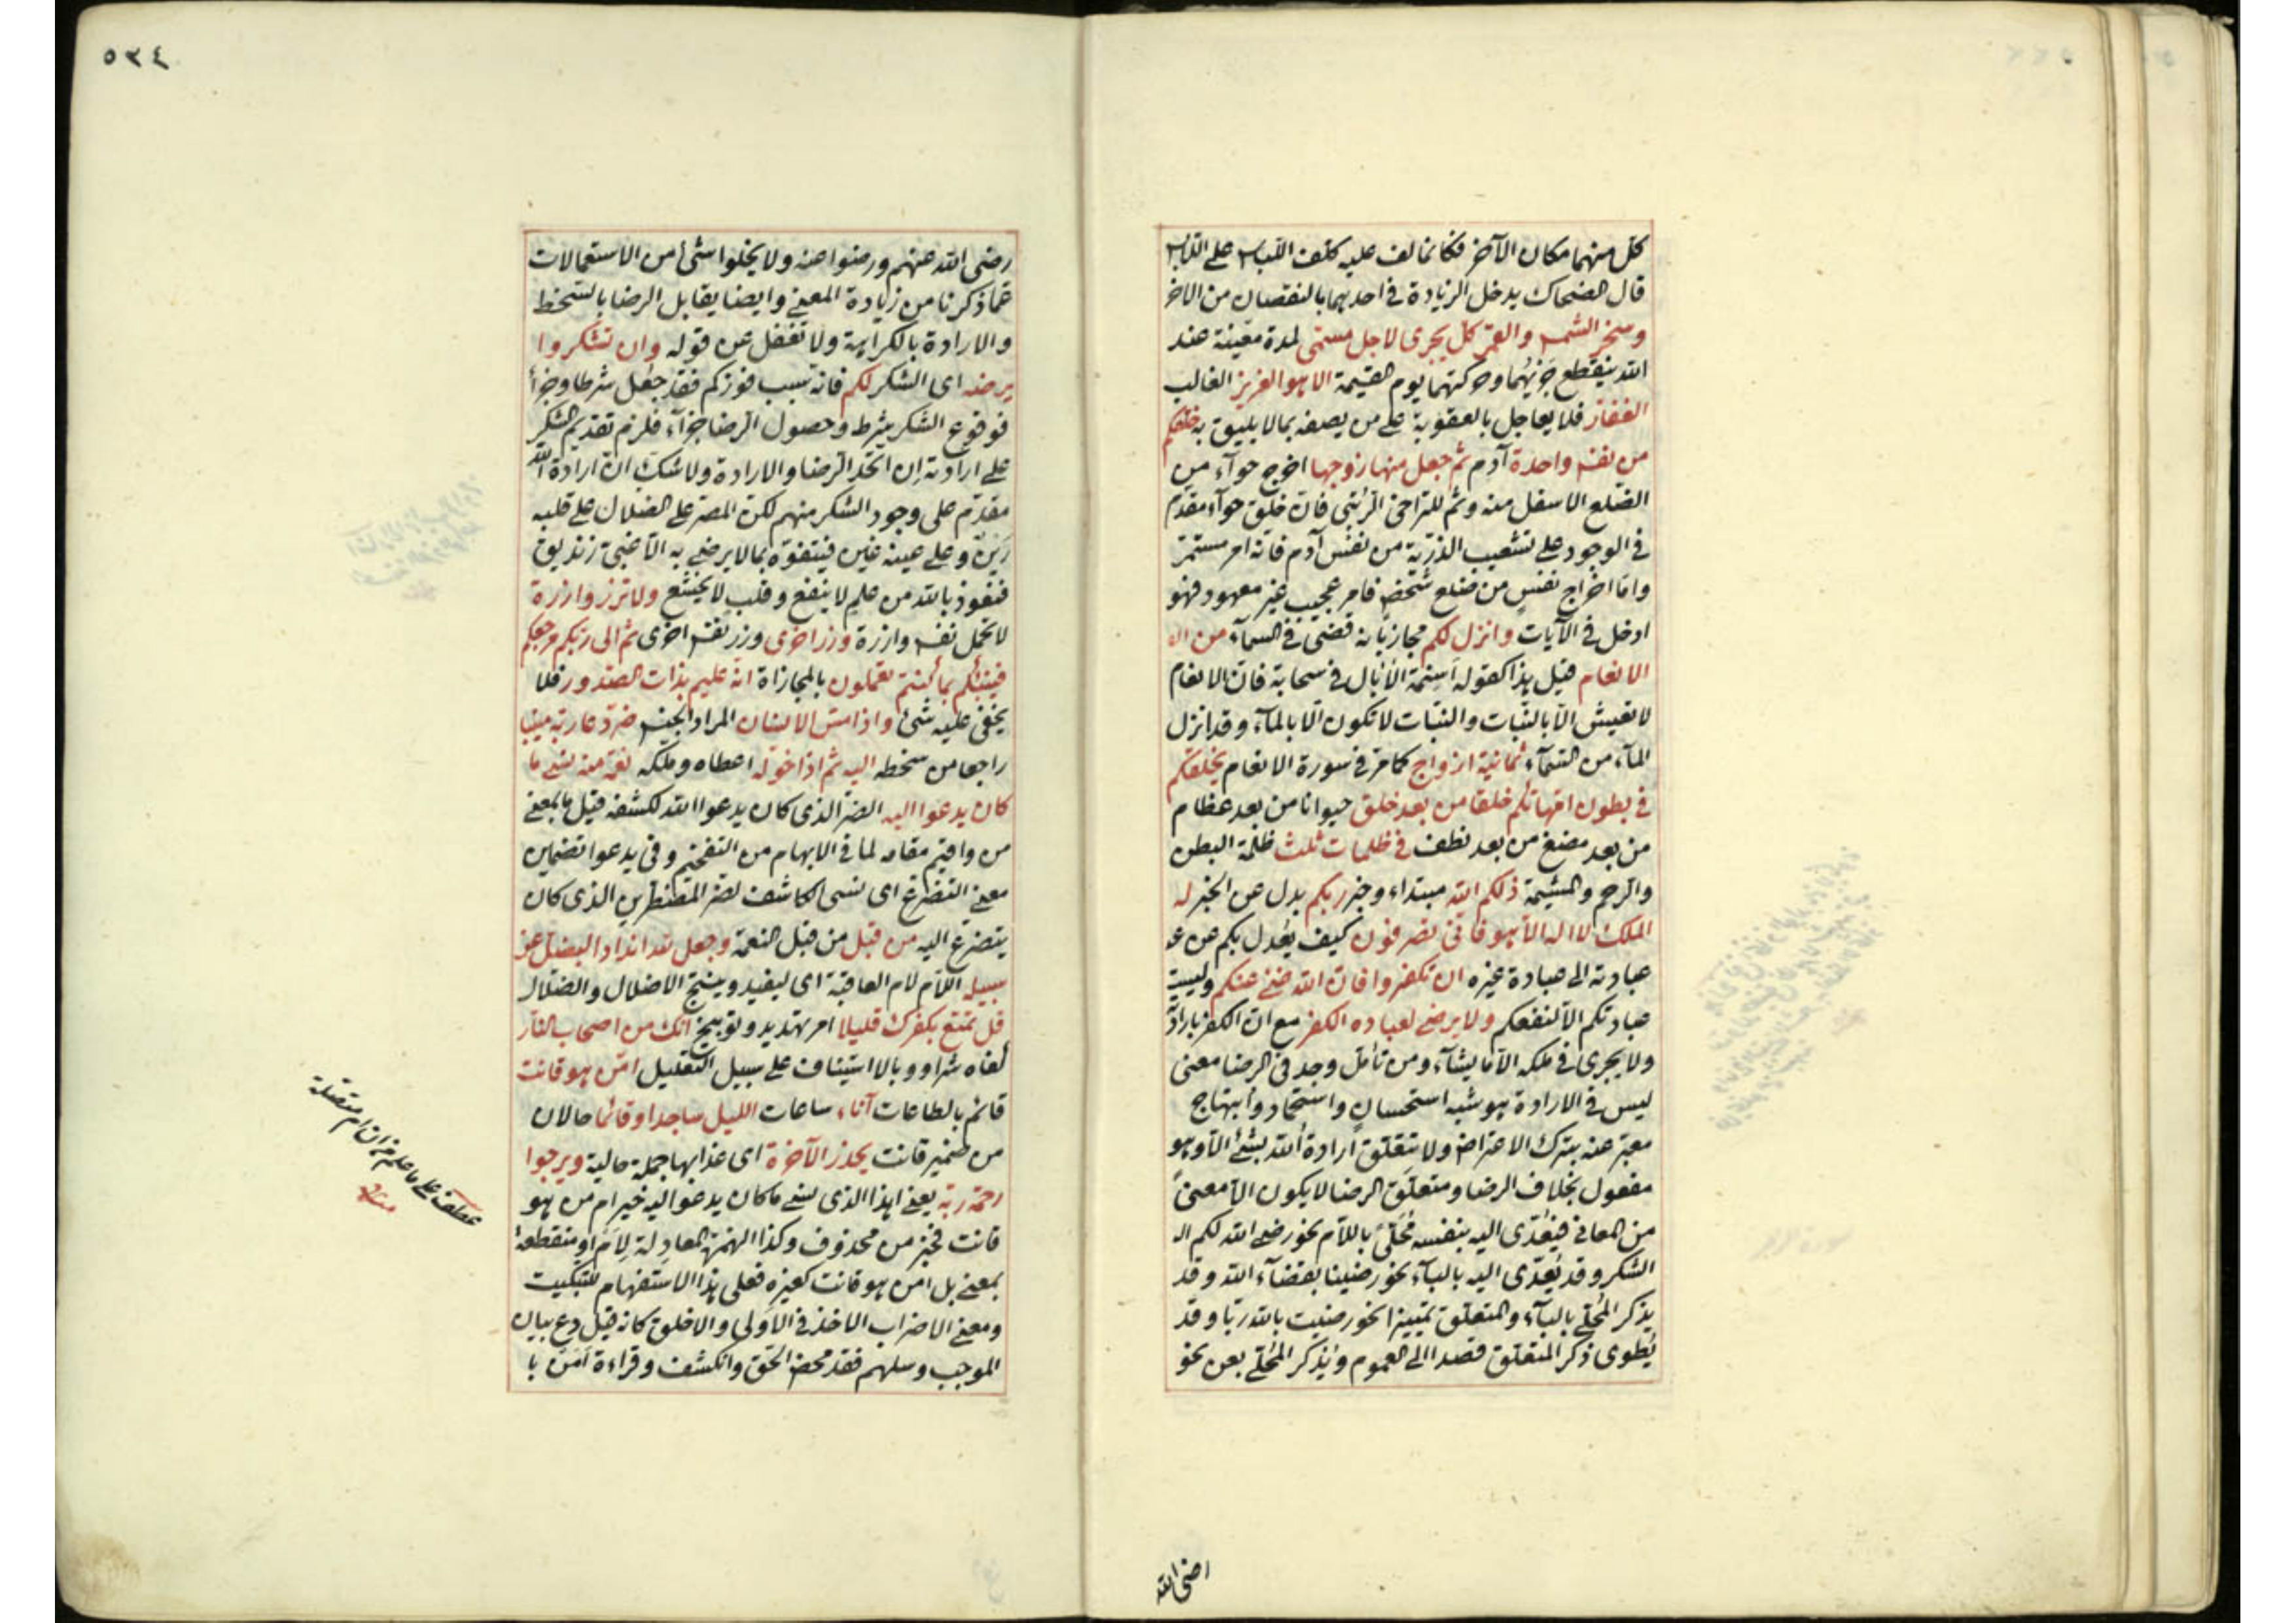 كل منهما مكان الآخر فكانما لف عليه كلف اللباس على اللابس
قال الضحاك يدخل الزيادة في احديهما بالنقصان من الاخر
وسخر الشمس والقمر كل يجرى لاجل مسمى لمدة معينة عند
الله ينقطع جريهما وحركتهما يوم القيمة الا هو العزيز الغالب
الغفار فلا يعاجل بالعقوبة على من يصفه بما لا يليق به خلقكم
من نفس واحدة آدم ثم جعل منها زوجها اخرج حواء من
الضلع الاسفل منه وثم للتراخى الرتبى فان خلق حواء مقدم
فى الوجود على تشعيب الذرية من نفس آدم فانه امر مستمر
واما اخراج نفس من ضلع شخص فامر عجيب غير معهود فهو
ادخل فى الآيات وانزل لكم مجاز بانه قضى فى السماء من الا
الانعام قيل هذا كقوله اسنمة الآبال فى سحابة فان الانعام
لا تعيش الا بالنبات والنبات لا تكون الا بالماء وقد انزل
الماء من السماء ثمانية ازواج كما مر فى سورة الانعام يخلقكم
فى بطون امهاتكم خلقا من بعد خلق حيوانا من بعد عظام
من بعد مضغ من بعد نطف فى ظلمات ثلث ظلمة البطن
والرحم والمشيمة ذلكم الله مبتداء وخبر ربكم بدل عن الخبر له
الملك لا اله الا هو فانى تصرفون كيف يعدل بكم عن عـ
عبادته الى عبادة غيره ان تكفروا فان الله غنى عنكم وليست
عبادتكم الا لنفعكم ولا يرضى لعباده الكفر مع ان الكفر بارادته
ولا يجرى فى ملكه الا ما يشاء ومن تأمل وجد فى الرضا معنى
ليس فى الارادة هو شبه استحسان واستحماد وابتهاج
معبر عنه بترك الاعتراض ولا تتعلق ارادة الله بشئ الا وهو
مفعول بخلاف الرضا ومتعلق الرضا لا يكون الا معنىً
من المعانى فيعدى اليه بنفسه مُحَلّىً باللام نحو رضى الله لكم الـ
الشكر وقد يُعدّى اليه بالباء نحو رضينا بقضاء الله وقد
يذكر المحلى بالباء والمتعلق تمييزا نحو رضيت بالله ربا وقد
يُطوى ذكر المتعلق قصدا الى العموم ويُذكر المحلى بعن نحو
رضى الله
٥٣٤
رضى الله عنهم ورضوا عنه ولا يخلوا شئ من الاستعمالات
عما ذكرنا من زيادة المعنى وايضا يقابل الرضا بالسخط
والارادة بالكراهة ولا تغفل عن قوله وان تشكروا
يرضه اى الشكر لكم فانه سبب فوزكم فقد جعل شرطا وجزاء
فوقوع الشكر شرط وحصول الرضا جزاء فلزم تقديم الشكر
على ارادته ان اتحد الرضا والارادة ولا شك ان ارادة الله
مقدم على وجود الشكر منهم لكن المصر على الضلال على قلبه
رين وعلى عينه غين فيتفوه بما لا يرضى به الا غبى زنديق
فنعوذ بالله من علم لا ينفع وقلب لا يخشع ولا تزر وازرة
لا تحمل نفس وازرة وزر اخرى وزر نفس اخرى ثم الى ربكم مرجعكم
فينبئكم بما كنتم تعملون بالمجازاة انه عليم بذات الصدور فلا
يخفى عليه شئ واذا مس الانسان المراد الجنس ضر دعا ربه منيبا
راجعا من سخطه اليه ثم اذا خوله اعطاه وملكه نعمة منه نسى ما
كان يدعوا اليه الضر الذى كان يدعوا الله لكشفه قيل ما بمعنى
من واقيم مقامه لما فى الابهام من التفخيم وفى يدعوا تضمين
معنى التضرع اى نسى الكاشف لضر المضطرين الذى كان
يتضرع اليه من قبل من قبل النعمة وجعل لله اندادا ليضل عن
سبيله اللام لام العاقبة اى ليفيد وينتج الاضلال والضلال
قل تمتع بكفرك قليلا امر تهديد وتوبيخ انك من اصحاب النار
كفاه شرا ووبالا استيناف على سبيل التعليل امن هو قانت
قائم بالطاعات آناء ساعات الليل ساجدا وقائما حالان
من ضمير قانت يحذر الآخرة اى عذابها جملة حالية ويرجوا
رحمة ربه يعنى اهذا الذى نسى ما كان يدعوا اليه خير ام من هو
قانت فخبر من محذوف وكذا الهمزة المعادلة لِاَم او منقطعة
بمعنى بل امن هو قانت كغيره فعلى هذا الاستفهام للتبكيت
ومعنى الاضراب الاخذ فى الاولى والاخلق كانه قيل دع بيان
الموجب وسلهم فقد محض الحق وانكشف وقراءة امن با
عطف على ما علم من ان ام متصلة
منه